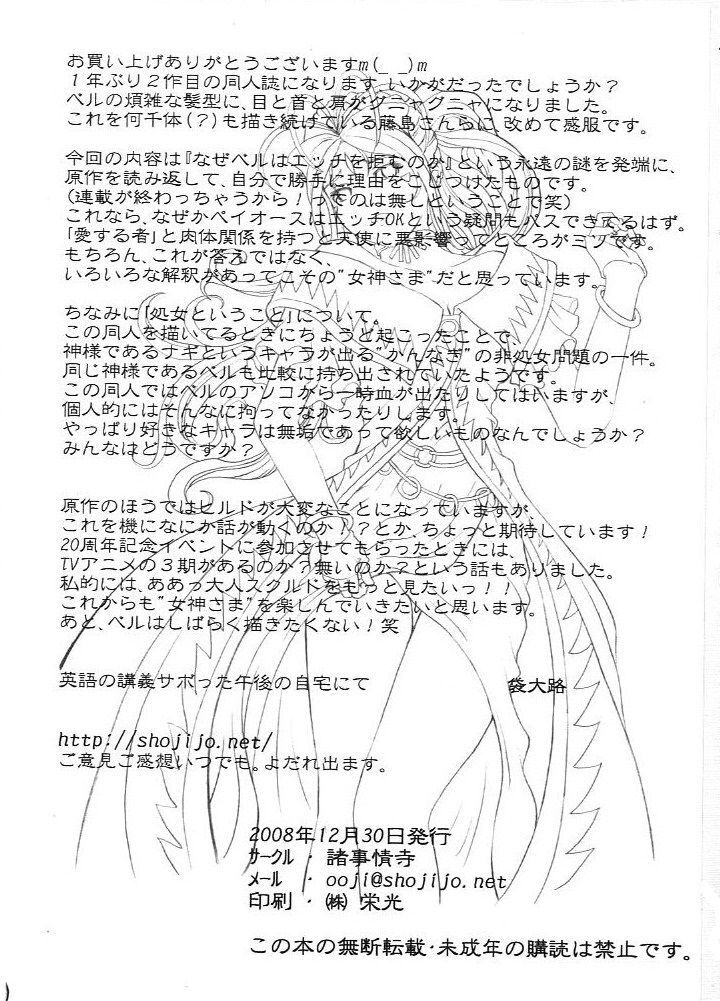 お買い上げありがとうございますm(_ _)m
１年ぶり２作目の同人誌になります。いかがだったでしょうか？
ベルの煩雑な髪型に、目と首と肩がグニャグニャになりました。
これを何千体(？)も描き続けている藤島さんらに、改めて感服です。
今回の内容は『なぜベルはエッチを拒むのか』という永遠の謎を発端に、
原作を読み返して、自分で勝手に理由をこじつけたものです。
(連載が終わっちゃうから！ってのは無しということで笑)
これなら、なぜかペイオースはエッチOKという疑問もパスできてるはず。
「愛する者」と肉体関係を持つと天使に悪影響ってところがミソです。
もちろん、これが答えではなく、
いろいろな解釈があってこその"女神さま"だと思っています。
ちなみに「処女ということ」について。
この同人を描いてるときにちょうど起こったことで、
神様であるナギというキャラが出る"かんなぎ"の非処女問題の一件。
同じ神様であるベルも比較に持ち出されていたようです。
この同人ではベルのアソコから一時血が出たりしてはいますが、
個人的にはそんなに拘ってなかったりします。
やっぱり好きなキャラは無垢であって欲しいものなんでしょうか？
みんなはどうですか？
原作のほうではヒルドが大変なことになっていますが、
これを機になにか話が動くのか！？とか、ちょっと期待しています！
20周年記念イベントに参加させてもらったときには、
TVアニメの３期があるのか？無いのか？という話もありました。
私的には、ああっ大人スクルドをもっと見たいっ！！
これからも"女神さま"を楽しんでいきたいと思います。
あと、ベルはしばらく描きたくない！笑
英語の講義サボった午後の自宅にて 袋大路
http://shojijo.net/
ご意見ご感想いつでも。よだれ出ます。
2008年12月30日発行
ｻｰｸﾙ ・ 諸事情寺
ﾒｰﾙ ・ ooji@shojijo.net
印刷 ・ ㈱ 栄光
この本の無断転載・未成年の購読は禁止です。